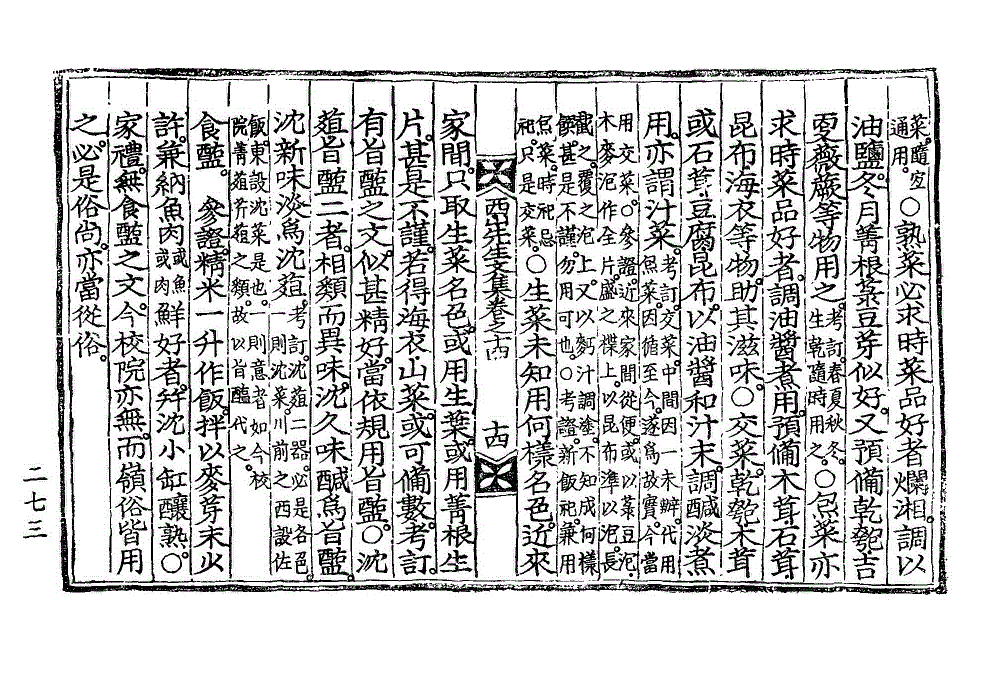 菜隨宜
通用○熟菜必求時菜品好者爛湘調以
油鹽冬月菁根菉豆芽似好又預備乾匏吉
更薇蕨等物用之考訂春夏秋冬
生乾隨時用之○魚菜亦
求時菜品好者調油醬煮用預備木茸石茸
昆布海衣等物助其滋味○交菜乾匏木茸
或石茸豆腐昆布以油醬和汁末調醎淡煮
用亦謂汁菜考訂交菜中間因一未辭代用
魚菜因循至今遂爲故實今當
用交菜○參證近來家間從便或以菉豆泡
木麥泡作全片盛之楪上以昆布準以泡長
覆之泡上又以麪汁調塗不知成何樣
饌甚是不謹勿用可也○考證新飯祀兼用
魚菜時祀忌
祀只是交菜○生菜未知用何樣名色近來
西先生文集卷之西 十四
家間只取生菜名色或用生葉或用菁根生
片甚是不謹若得海衣山菜或可備數考訂
有旨醢之文似甚精好當依規用旨醢○沈
葅旨醢二者相類而異味沈久味醎爲旨醢
沈新味淡爲沈葅考訂沈葅二器必是各色
一則沈菜川前之西設佐
飯東設沈菜是也一則意者如今校
院菁葅芹葅之類故以旨醢代之
食醢 參證精米一升作飯拌以麥芽末少
許兼納魚肉或魚
或肉鮮好者幷沈小缸釀熟○
家禮無食醢之文今校院亦無而嶺俗皆用
之必是俗尚亦當從俗
二七三